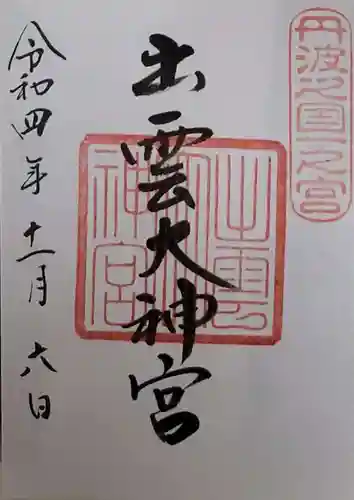 丹波之國一之宮
出雲大神宮
出雲大神宮
令和四年十一月六日